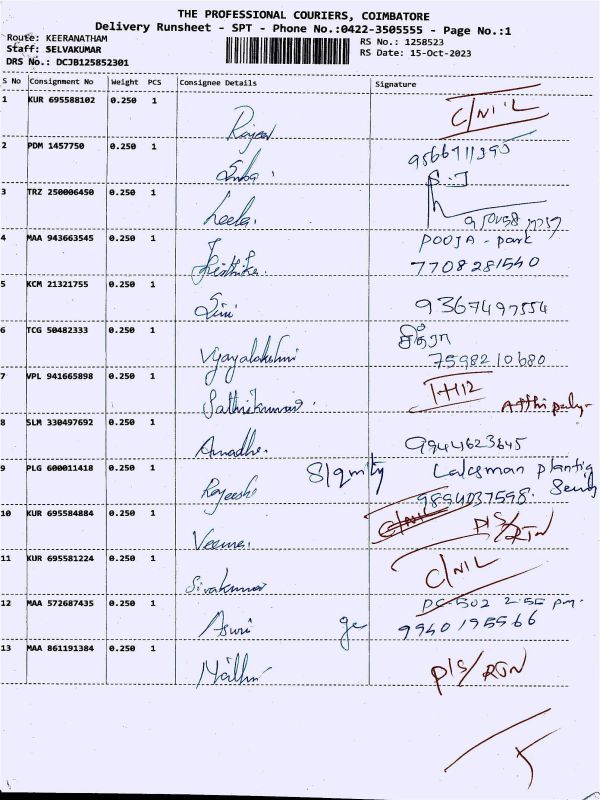 THE PROFESSIONAL COURIERS, COIMBATORE
Delivery Runsheet - SPT - Phone No.:0422-3505555 - Page No.:1
Route: KEERANATHAM
RS No.: 1258523
Staff: SELVAKUMAR
RS Date: 15-Oct-2023
DRS No.: DCJB125852301
S No Consignment No Weight PCS Consignee Details Signature
1 KUR 695588102 0.250 1 Rajeev C/NIL
2 PDM 1457750 0.250 1
3 TRZ 250006450 0.250 1 Leela.
4 MAA 943663545 0.250 1 POOJA - park
7708281540
5 KCM 21321755 0.250 1 Sini 9367497554
6 TCG 50482333 0.250 1 Vijayalakshmi சித்ரா
7598210680
7 VPL 941665898 0.250 1 Sathikumar.
8 SLM 330497692 0.250 1 9944623645
9 PLG 600011418 0.250 1 Rajeesh
9894037598.
10 KUR 695584884 0.250 1 Veena. C/NIL P/S/RTN
11 KUR 695581224 0.250 1 Sivakumar C/NIL
12 MAA 572687435 0.250 1 Aswi 2:55 pm.
9940195566
13 MAA 861191384 0.250 1 P/S/RTN